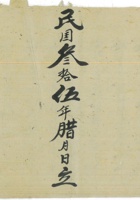 民国叁拾伍年腊月日立